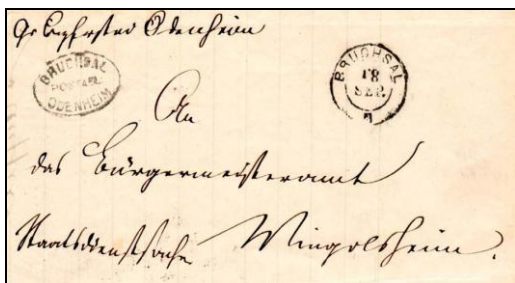 Gr Odenheim
BRUCHSAL
POSTABL.
ODENHEIM
BRUCHSAL
18
SEP.
An
das Bürgermeisteramt
Staatsdienstsache Mingolsheim.